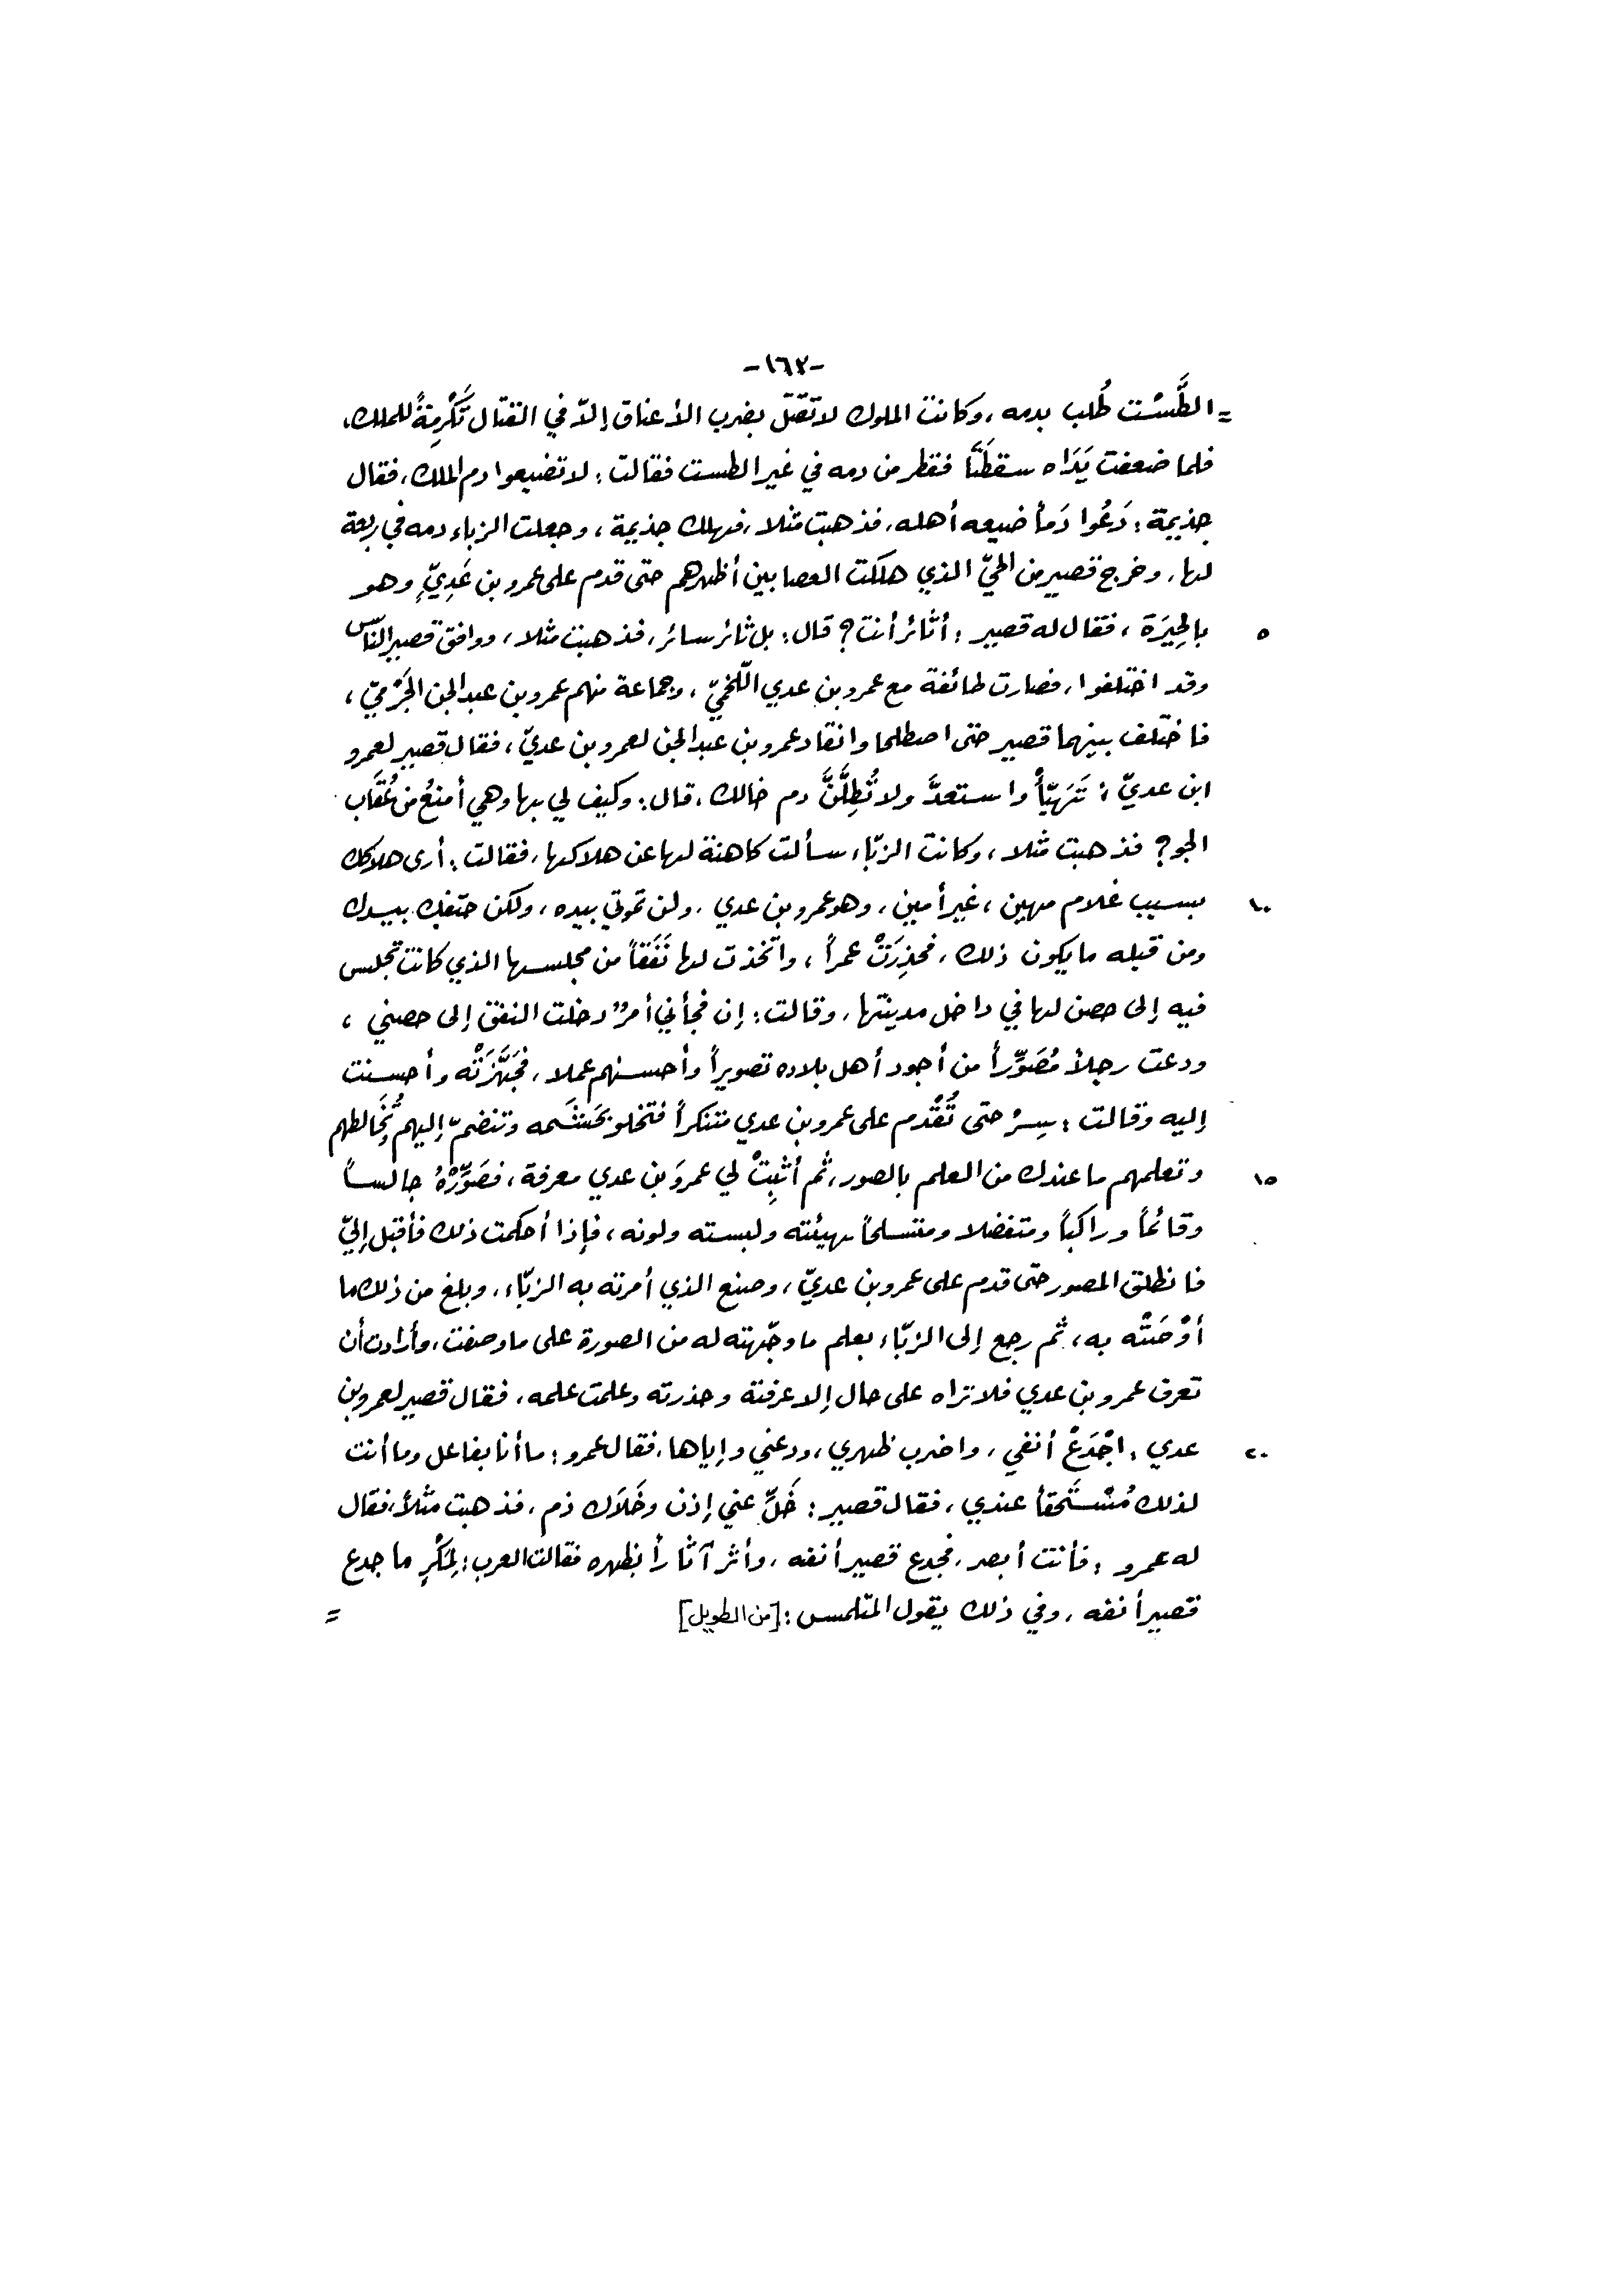 -١٦٢-
= الطَّسْت طُلب بدمه، وكانت الملوك لا تقتل بضرب الأعناق إلّا في القتال تَكْرِمةً للملك،
فلما ضعفت يَدَاه سقطَتَا فقطر من دمه في غير الطست فقالت: لا تضيعوا دم الملك، فقال
جذيمة: دَعُوا دَماً ضيعه أهله، فذهبت مثلا، فهلك جذيمة، وجعلت الزباء دمه في ربعة
لها، وخرج قصير من الحيّ الذي هلكت العصا بين أظهرهم حتى قدم على عمرو بن عَدِيٍّ وهو
٥ بالحِيرَة، فقال له قصير: أثائر أنت؟ قال: بل ثائر سائر، فذهبت مثلا، ووافق قصير النّاس
وقد اختلفوا، فصارت طائفة مع عمرو بن عدي اللّخميّ، وجماعة منهم عمرو بن عبد الجن الجَرْميّ،
فاختلف بينهما قصير حتى اصطلحا وانقاد عمرو بن عبد الجن لعمرو بن عديّ، فقال قصير لعمرو
ابن عديّ: تَهَيّأْ واستعدَّ ولا تُطِلَّنَّ دم خالك، قال: وكيف لي بها وهي أمنعُ من عُقَاب
الجو؟ فذهبت مثلا، وكانت الزبّاء سألت كاهنة لها عن هلاكها، فقالت: أرى هلاكك
١٠ بسبب غلام مهين، غير أمين، وهو عمرو بن عدي، ولن تموتي بيده، ولكن حتفك بيدك
ومن قبله ما يكون ذلك، فحذِرَتْ عمراً، واتّخذت لها نَفَقاً من مجلسها الذي كانت تجلس
فيه إلى حصن لها في داخل مدينتها، وقالت: إن فجأني أمرٌ دخلت النفق إلى حصني،
ودعت رجلاً مُصَوِّراً من أجود أهل بلاده تصويراً وأحسنهم عملا، فجَهَّزَتْه وأحسنت
إليه وقالت: سِرْ حتى تُقْدم على عمرو بن عدي متنكراً فتخلو بحَشَمه وتنضمّ إليهم تُخَالطهم
١٥ وتعلمهم ما عندك من العلم بالصور، ثم أثبِتْ لي عمرَو بن عدي معرفة، فصَوِّرْهُ جالساً
وقائماً وراكباً ومتفضلا ومتسلحاً بهيئته ولبسته ولونه، فإذا أحكمت ذلك فأقبل إليّ
فانطلق المصور حتّى قدم على عمرو بن عديّ، وصنع الذي أمرته به الزبّاء، وبلغ من ذلك ما
أوْصَتْه به، ثم رجع إلى الزبّاء بعلم ما وجّهته له من الصورة على ما وصفت، وأرادت أن
تعرف عمرو بن عدي فلا تراه على حال إلا عرفته وحذرته وعلمت علمه، فقال قصير لعمرو بن
٢٠ عدي: اجْدَعْ أنفي، واضرب ظهري، ودعني وإياها، فقال عمرو: ما أنا بفاعل وما أنت
لذلك مُسْتَحقاً عندي، فقال قصير: خَلِّ عني إذن وخَلاَك ذم، فذهبت مثلاً، فقال
له عمرو: فأنت أبصر، فجدع قصير أنفه، وأثر آثاراً بظهره فقالت العرب: لِمَكْرٍ ما جدع
قصير أنفه، وفي ذلك يقول المتلمس: [من الطويل] =